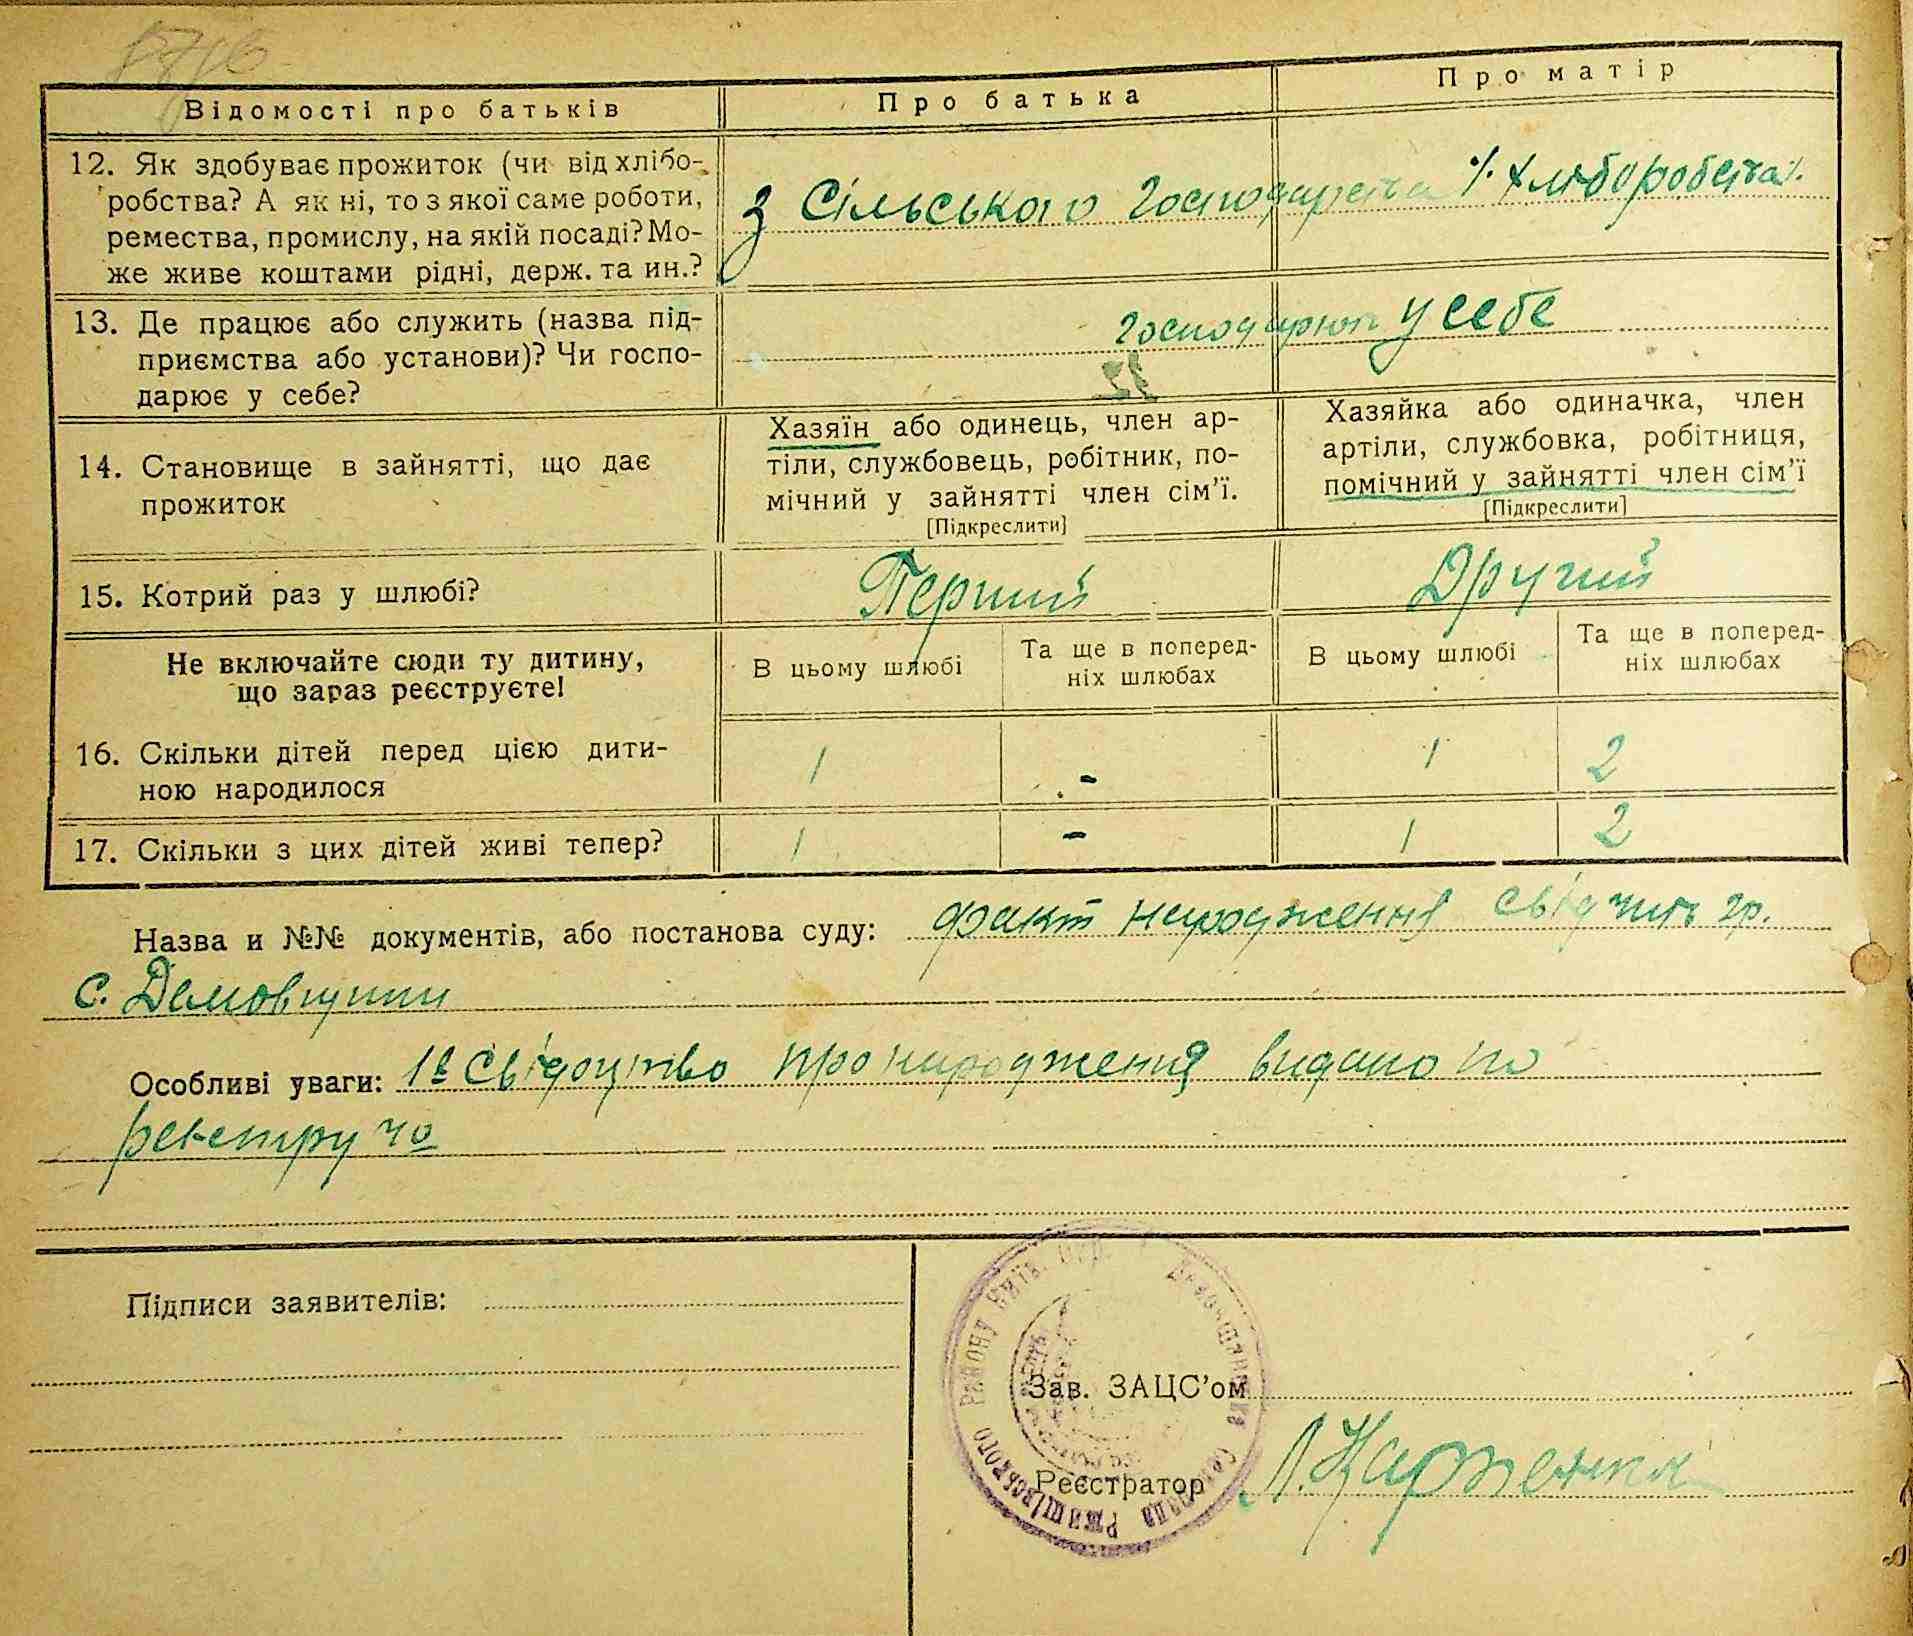 Відомості про батьків
Про батька
Про матір
12. Як здобуває прожиток (чи від хлібо-
робства? А як ні, то з якої саме роботи,
ремества, промислу, на якій посаді? Мо-
же живе коштами рідні, держ. та ин.?
з Сільського Господарства /. хліборобства/.
13. Де працює або служить (назва під-
приємства або установи)? Чи госпо-
дарює у себе?
Господарюют у себе
14. Становище в зайнятті, що дає
прожиток
Хазяїн або одинець, член ар-
тіли, службовець, робітник, по-
мічний у зайнятті член сім'ї.
[Підкреслити]
Хазяйка або одиначка, член
артіли, службовка, робітниця,
помічний у зайнятті член сім'ї
[Підкреслити]
15. Котрий раз у шлюбі?
Перший
Другий
Не включайте сюди ту дитину,
що зараз реєструєте!
В цьому шлюбі
Та ще в поперед-
ніх шлюбах
В цьому шлюбі
Та ще в поперед-
ніх шлюбах
16. Скільки дітей перед цією дити-
ною народилося
1 - 1 2
17. Скільки з цих дітей живі тепер?
1 - 1 2
Назва и №№ документів, або постанова суду: факт народження свідчить гр.
с. Демовщини
Особливі уваги: Свідоцтво про народження видано по
реєстру
Підписи заявителів:
Зав. ЗАЦС'ом
Реєстратор
Ржищівського району Київ. Окр.